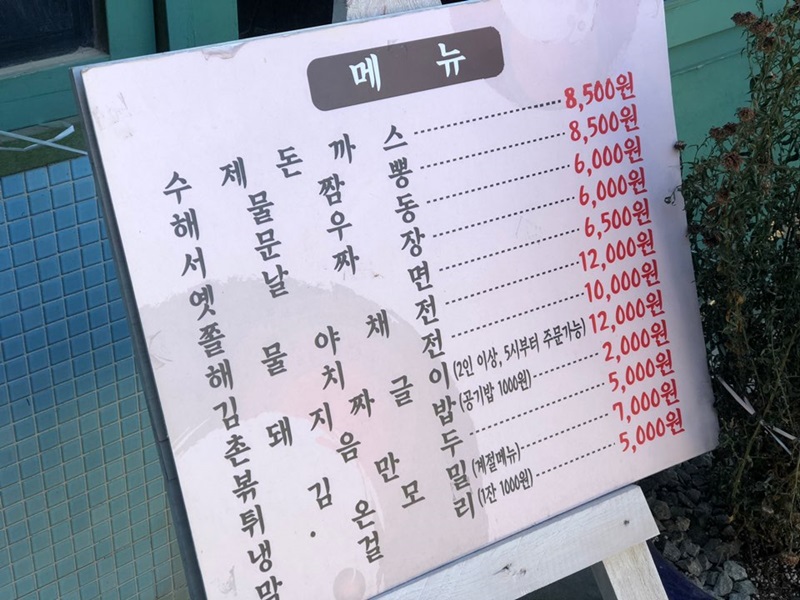 메뉴
수제돈까스 8,500원
해물짬뽕 8,500원
서문우동 6,000원
옛날짜장 6,000원
쫄면 6,500원
해물야채전 12,000원
김치전 10,000원
촌돼지짜글이 (2인 이상, 5시부터 주문가능) 12,000원
볶음밥 (공기밥 1000원) 2,000원
튀김만두 5,000원
냉·온모밀 (계절메뉴) 7,000원
막걸리 (1잔 1000원) 5,000원